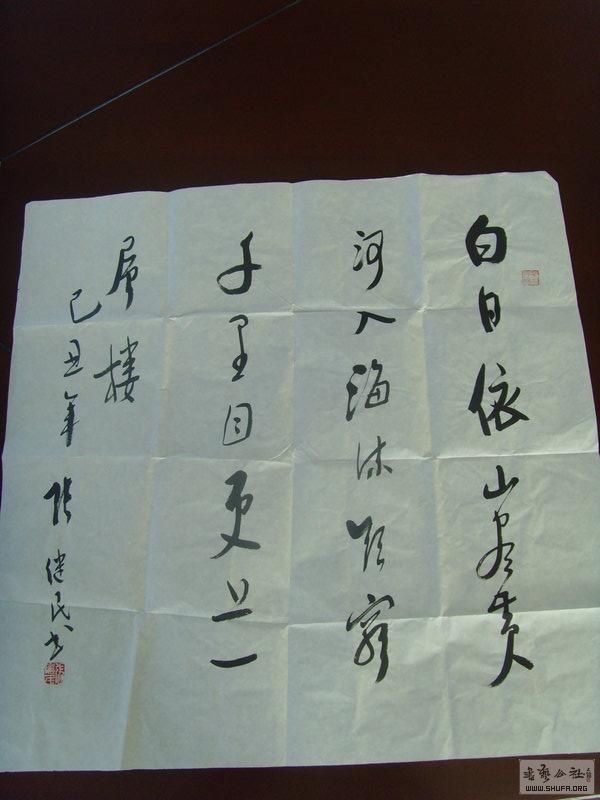 白日依山尽黄
河入海流欲穷
千里目更上一
层楼
己丑年 张继民书
書藝公社
WWW.SHUFA.ORG